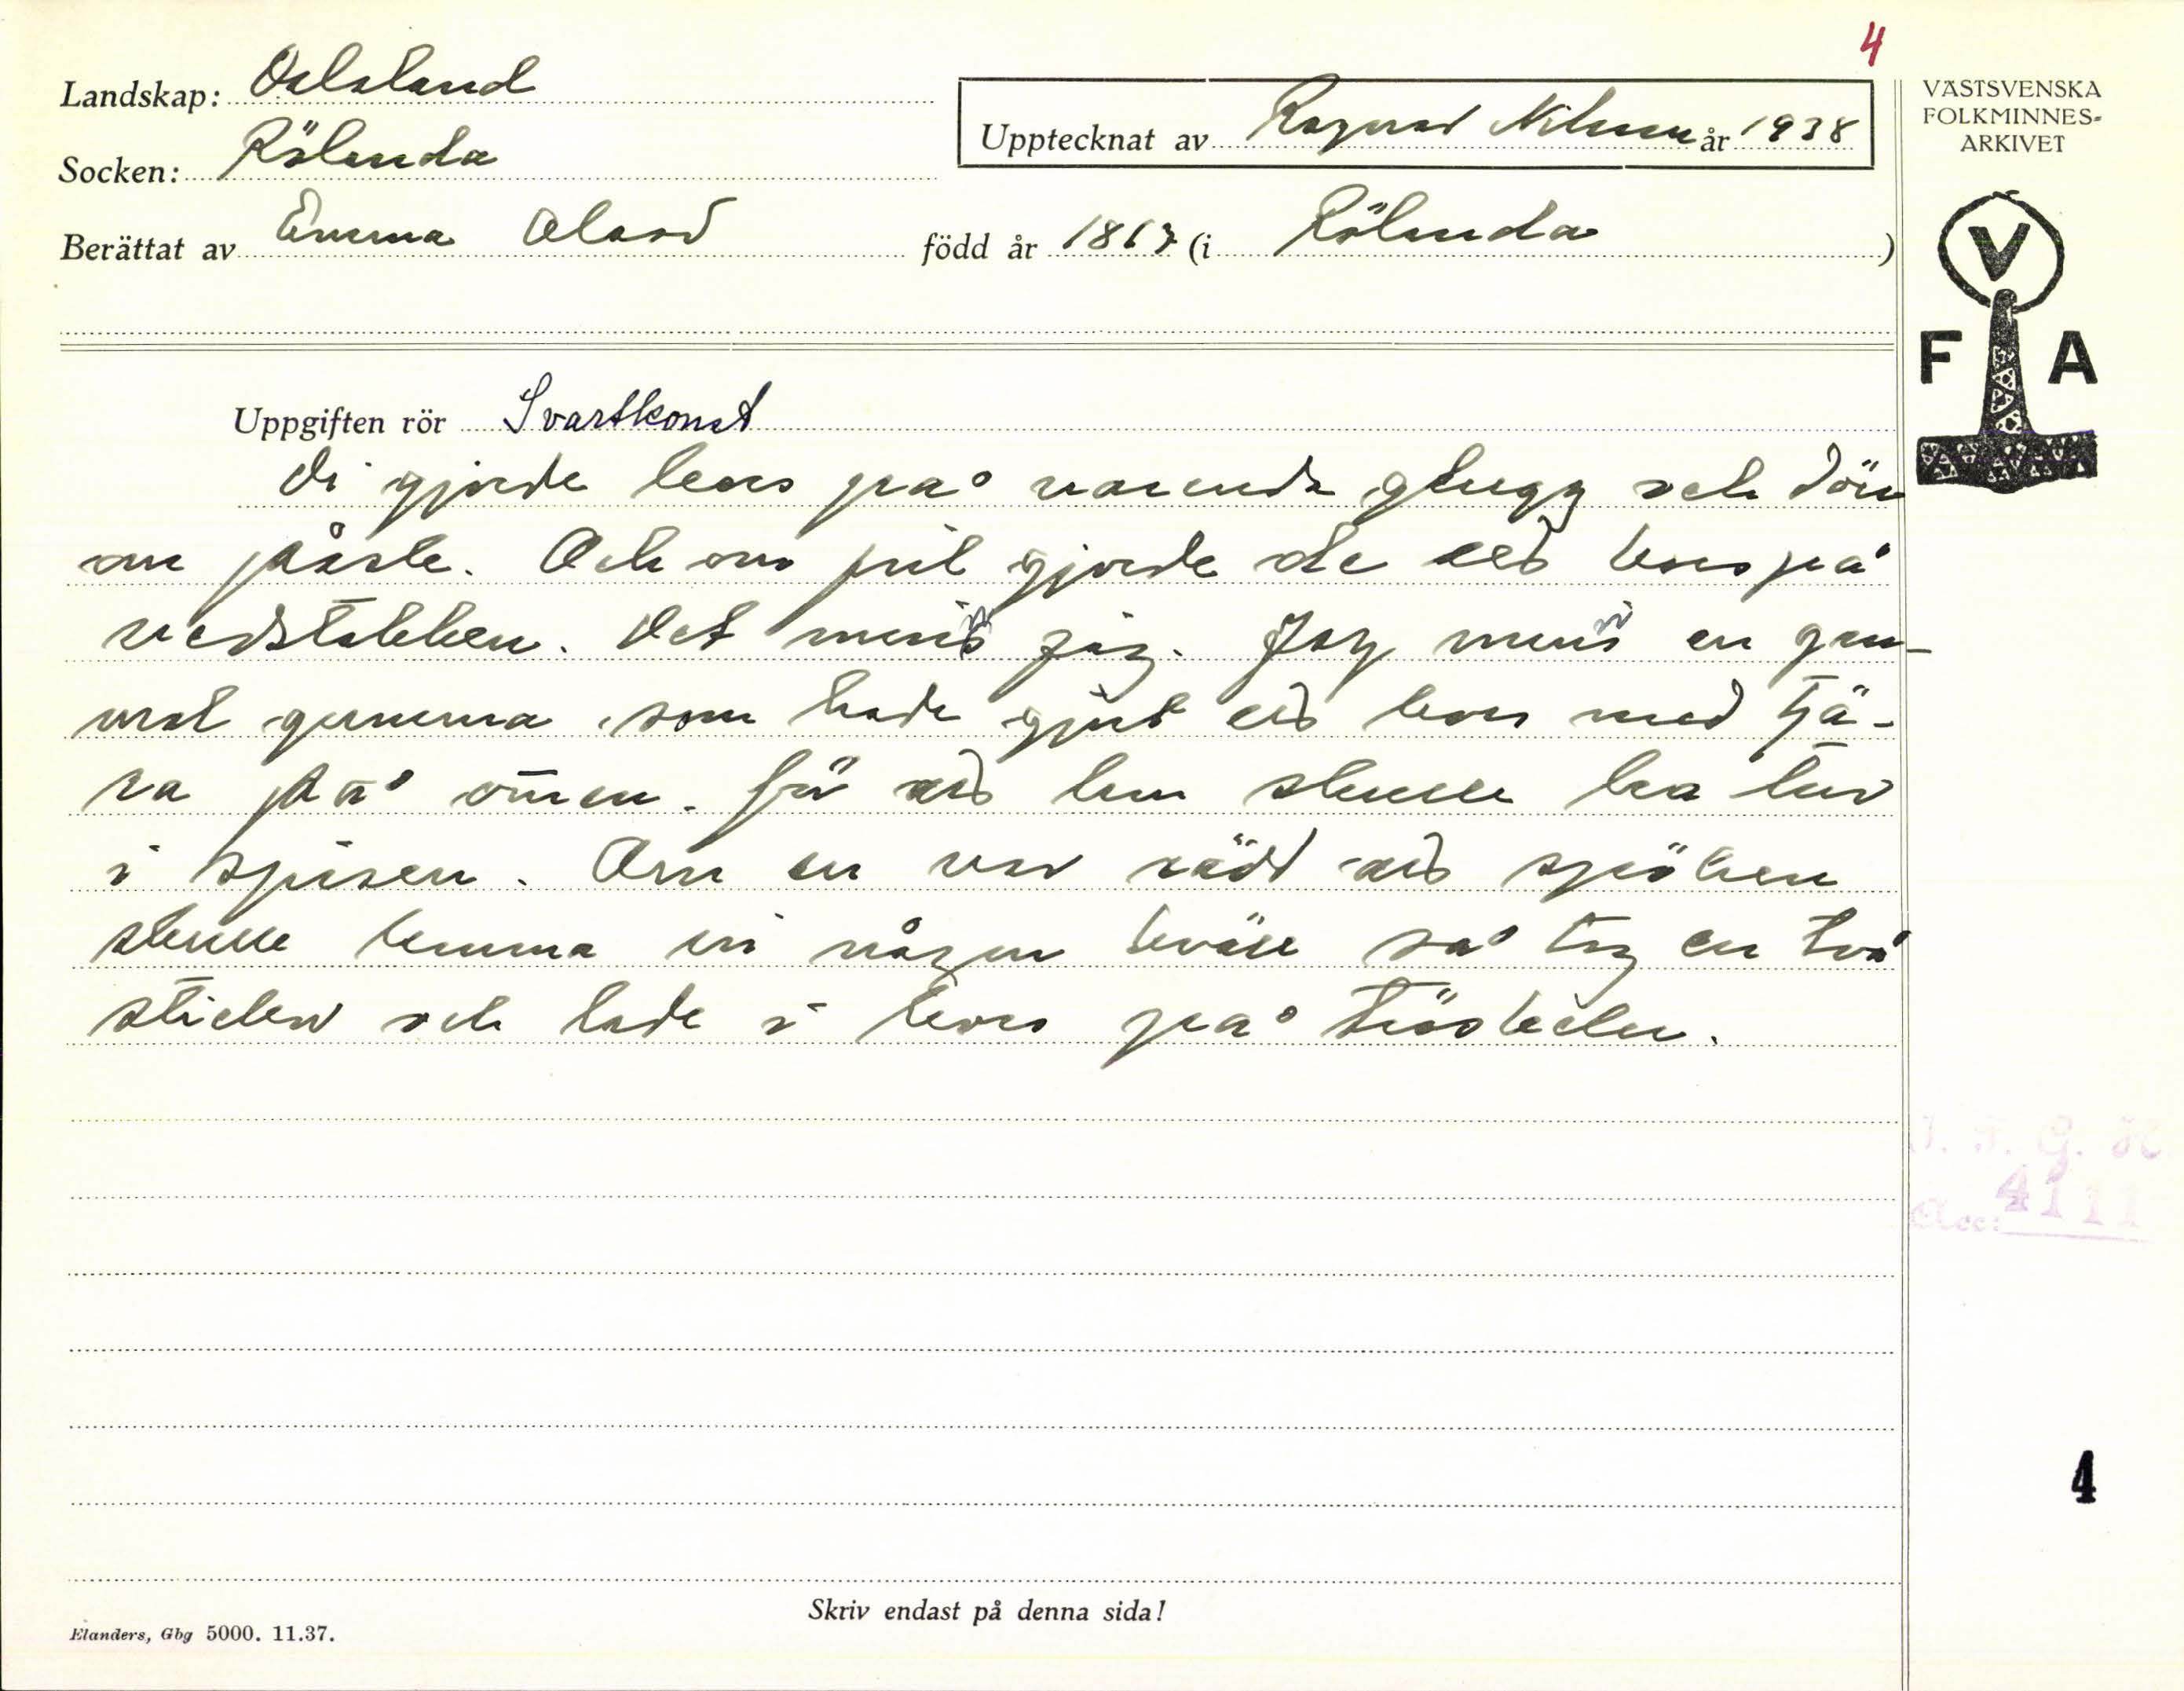 4
Landskap: Dalsland
Socken: Rölanda
Upptecknat av Ragnar Nilsson år 1938
Berättat av Emma Olsson född år 1867 (i Rölanda)
VÄSTSVENSKA
FOLKMINNES-
ARKIVET
V
F A
Uppgiften rör Svartkonst
Di gjorde kors på varenda glugg och dörr
om påske. Och om jul gjorde de ett kors på
vedstabben. Det minns jag. Jag minns en gam-
mal gumma som hade gjort ett kors med tjä-
ra på ômen. för att hon skulle ha tur
i spisen. Om en var rädd att spöken
skulle komma in någon kväll så tog en två
stickor och lade i kors på tröskeln.
Acc: 4111
4
Skriv endast på denna sida!
Elanders, Gbg 5000. 11.37.